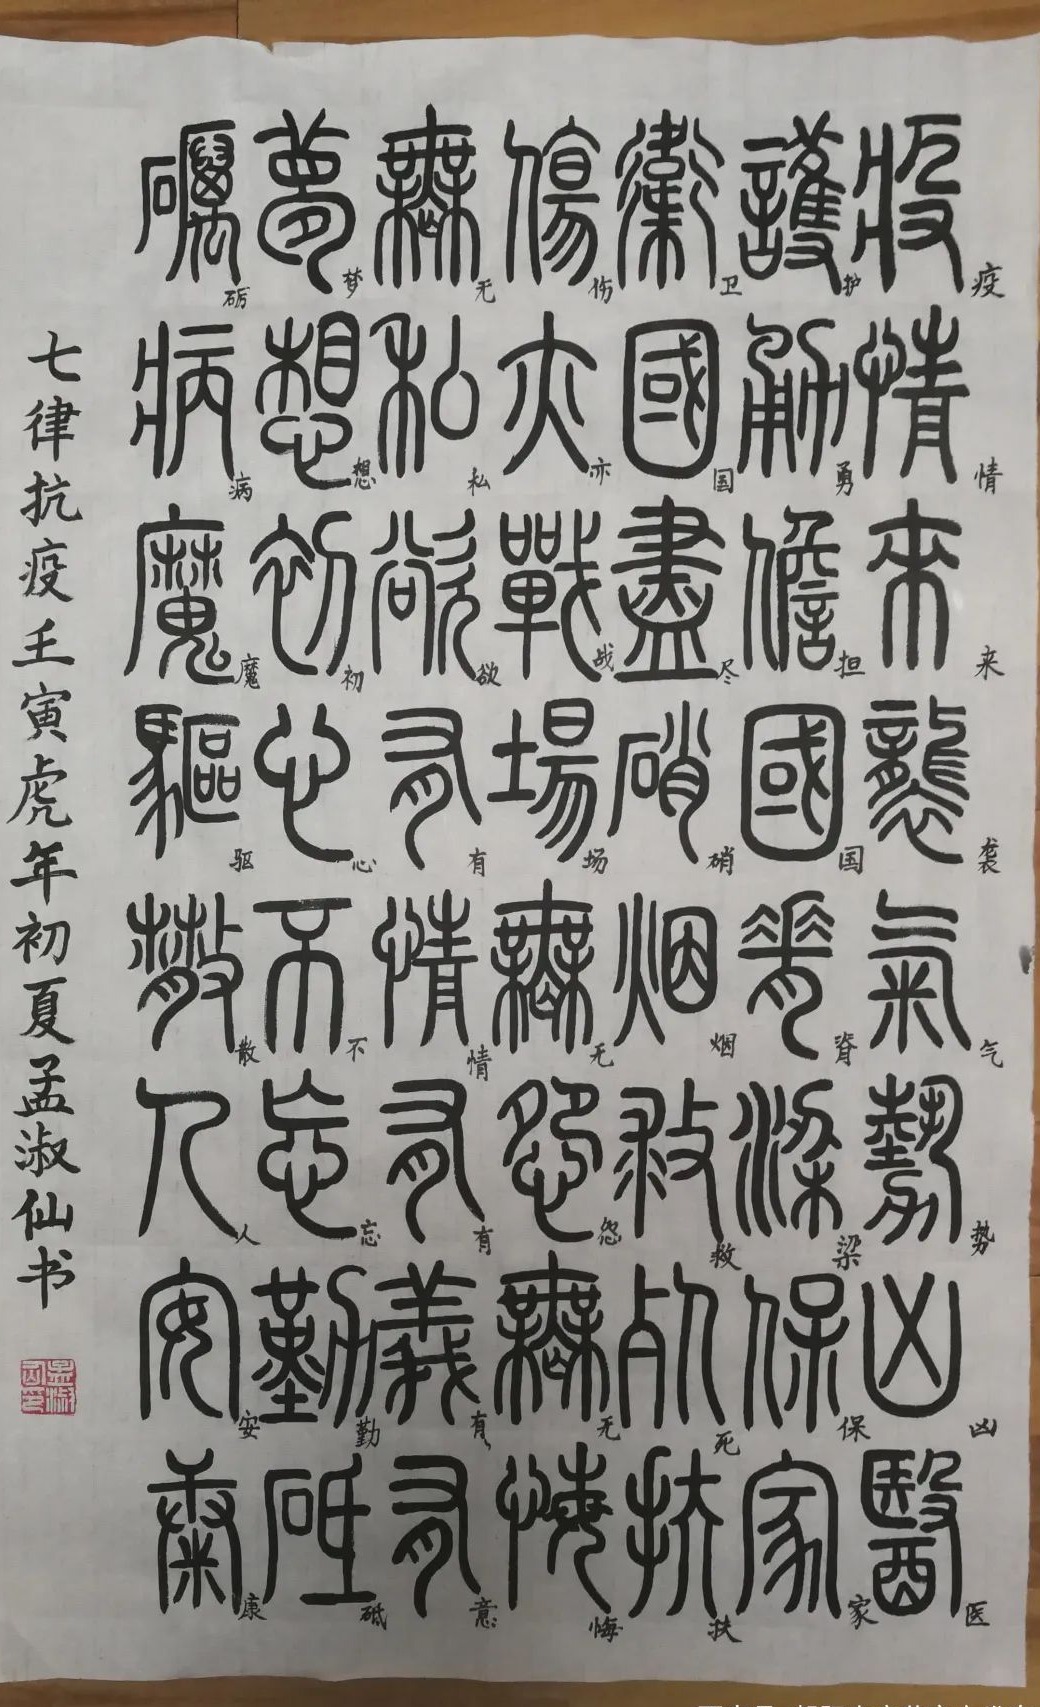 疫情來襲氣勢凶醫
疫情来袭气势凶医
護勇儋國脊梁保家
护勇担国脊梁保家
衛國盡硝烟救死扶
卫国尽硝烟救死扶
傷亦戰場無怨無悔
伤亦战场无怨无悔
無私欲有情有義有
无私欲有情有有意
夢想初心不忘勤砥
梦想初心不忘勤砥
礪病魔驅散人安康
砺病魔驱散人安康
七律抗疫壬寅虎年初夏孟淑仙书
孟淑仙印